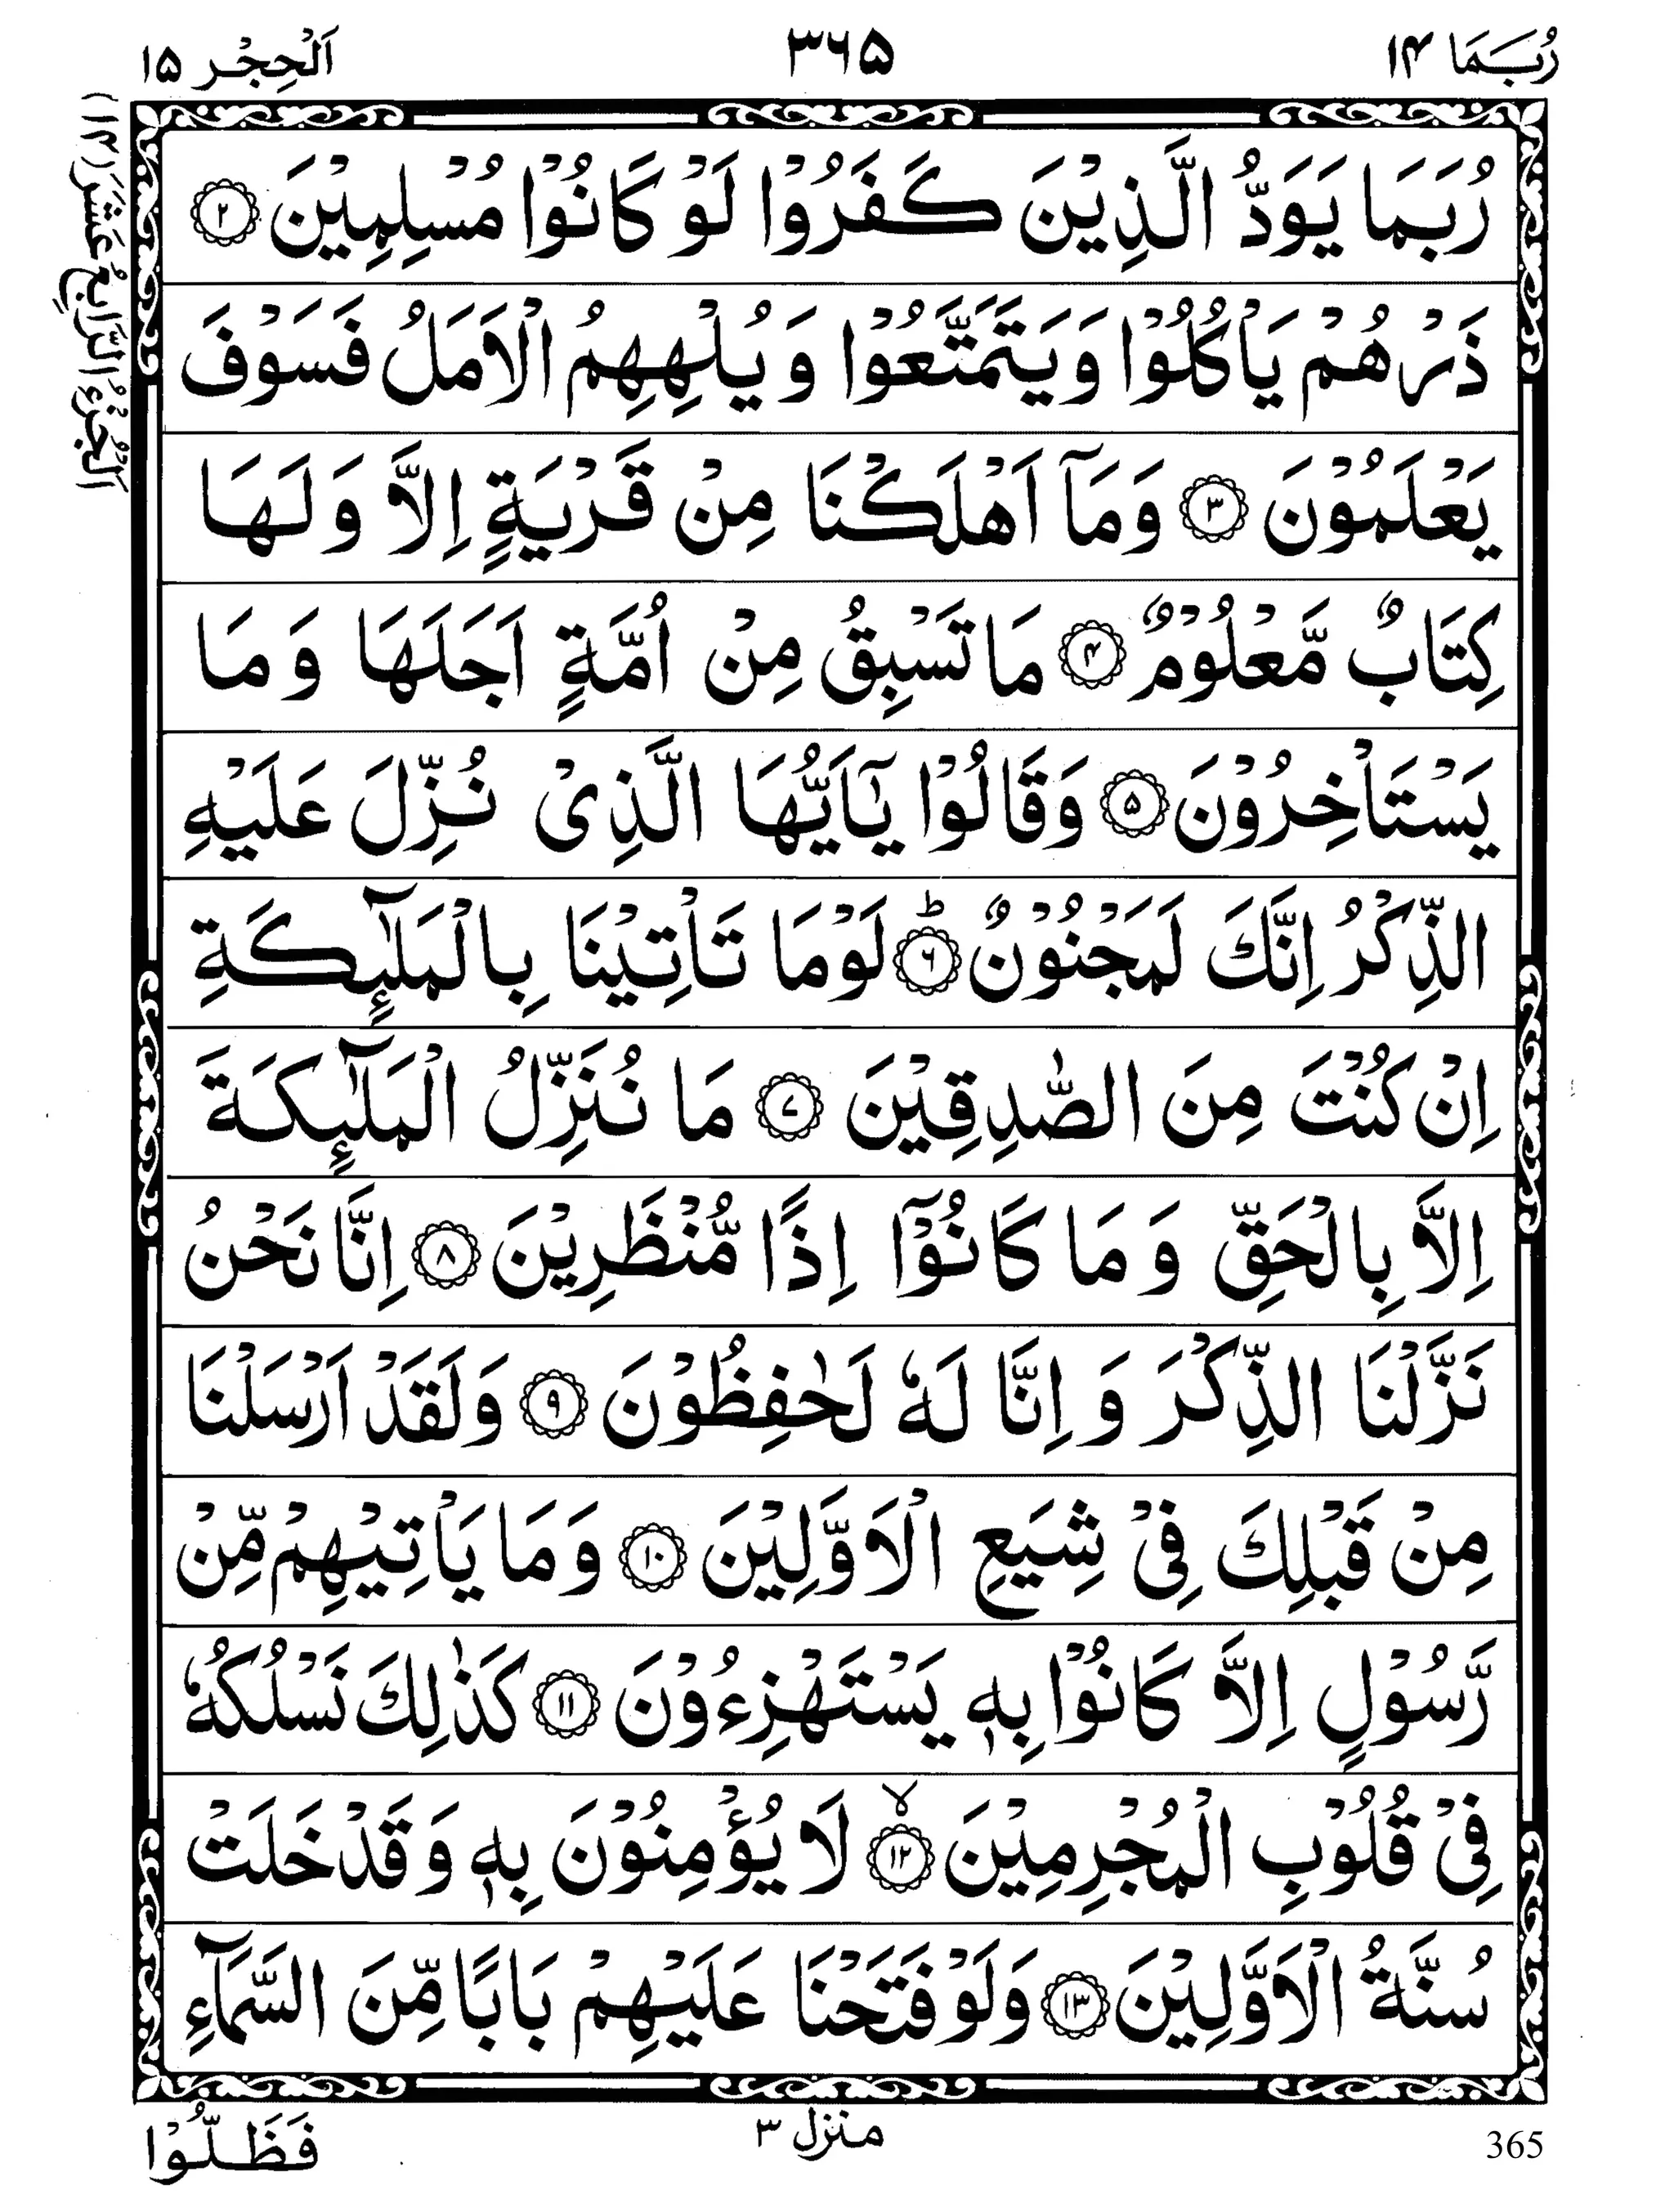 رُبَمَا ۱۴
۳۶۵
اَلْحِجْر ۱۵
اَلْجُزْءُ الرَّابِعُ عَشَرَ (۱۴)
رُبَمَا يَوَدُّ الَّذِيْنَ كَفَرُوْا لَوْ كَانُوْا مُسْلِمِيْنَ ۝۲
ذَرْهُمْ يَاْكُلُوْا وَيَتَمَتَّعُوْا وَيُلْهِهِمُ الْاَمَلُ فَسَوْفَ
يَعْلَمُوْنَ ۝۳ وَمَاۤ اَهْلَكْنَا مِنْ قَرْيَةٍ اِلَّا وَلَهَا
كِتَابٌ مَّعْلُوْمٌ ۝۴ مَا تَسْبِقُ مِنْ اُمَّةٍ اَجَلَهَا وَمَا
يَسْتَاْخِرُوْنَ ۝۵ وَقَالُوْا يٰۤاَيُّهَا الَّذِىْ نُزِّلَ عَلَيْهِ
الذِّكْرُ اِنَّكَ لَمَجْنُوْنٌ ۝۶ؕ لَوْمَا تَاْتِيْنَا بِالْمَلٰٓئِكَةِ
اِنْ كُنْتَ مِنَ الصّٰدِقِيْنَ ۝۷ مَا نُنَزِّلُ الْمَلٰٓئِكَةَ
اِلَّا بِالْحَقِّ وَمَا كَانُوْۤا اِذًا مُّنْظَرِيْنَ ۝۸ اِنَّا نَحْنُ
نَزَّلْنَا الذِّكْرَ وَاِنَّا لَهٗ لَحٰفِظُوْنَ ۝۹ وَلَقَدْ اَرْسَلْنَا
مِنْ قَبْلِكَ فِىْ شِيَعِ الْاَوَّلِيْنَ ۝۱۰ وَمَا يَاْتِيْهِمْ مِّنْ
رَّسُوْلٍ اِلَّا كَانُوْا بِهٖ يَسْتَهْزِءُوْنَ ۝۱۱ كَذٰلِكَ نَسْلُكُهٗ
فِىْ قُلُوْبِ الْمُجْرِمِيْنَ ۝۱۲ۙ لَا يُؤْمِنُوْنَ بِهٖ وَقَدْ خَلَتْ
سُنَّةُ الْاَوَّلِيْنَ ۝۱۳ وَلَوْ فَتَحْنَا عَلَيْهِمْ بَابًا مِّنَ السَّمَآءِ
فَظَلُّوْا
منزل ۳
365